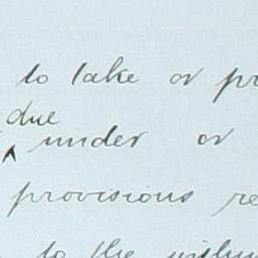 to take or pr
due
under or
provisions re
to the withi